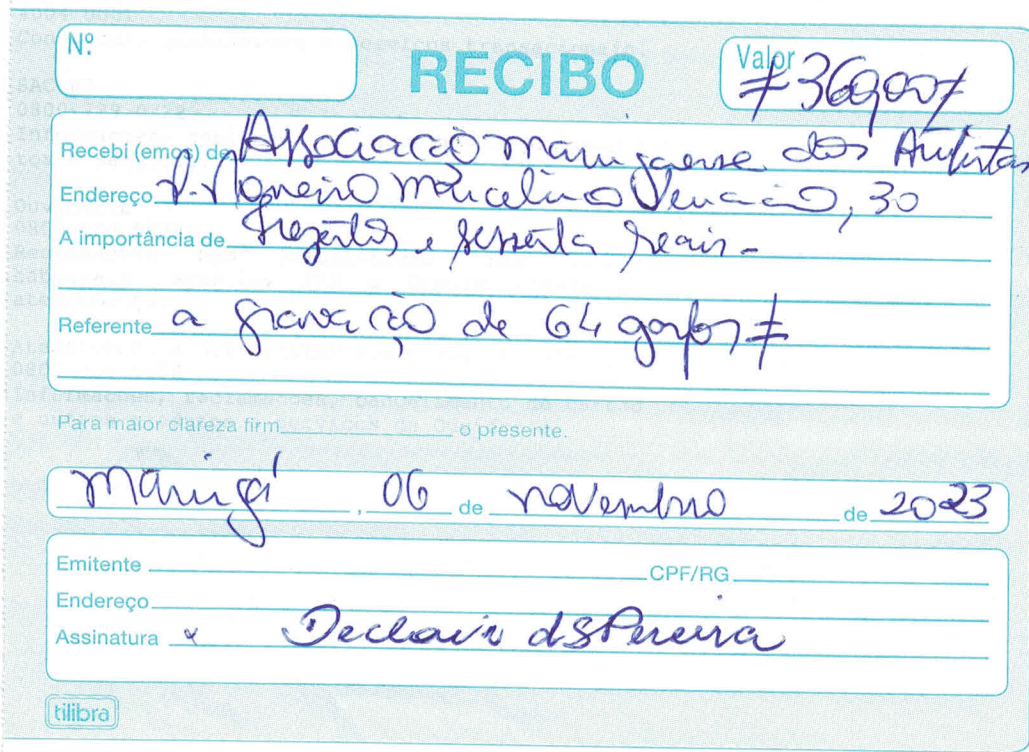 Nº
RECIBO
Valor
≠ 360,00 ≠
Recebi (emos) de Associação maringaense dos Autistas
Endereço R. Marcelino Venancio, 30
A importância de Trezentos e sessenta reais -
Referente a gravação de 64 garfos ≠
Para maior clareza firm ________ o presente.
Maringá, 06 de novembro de 2023
Emitente ________ CPF/RG ________
Endereço
Assinatura x Declair dS Pereira
tilibra